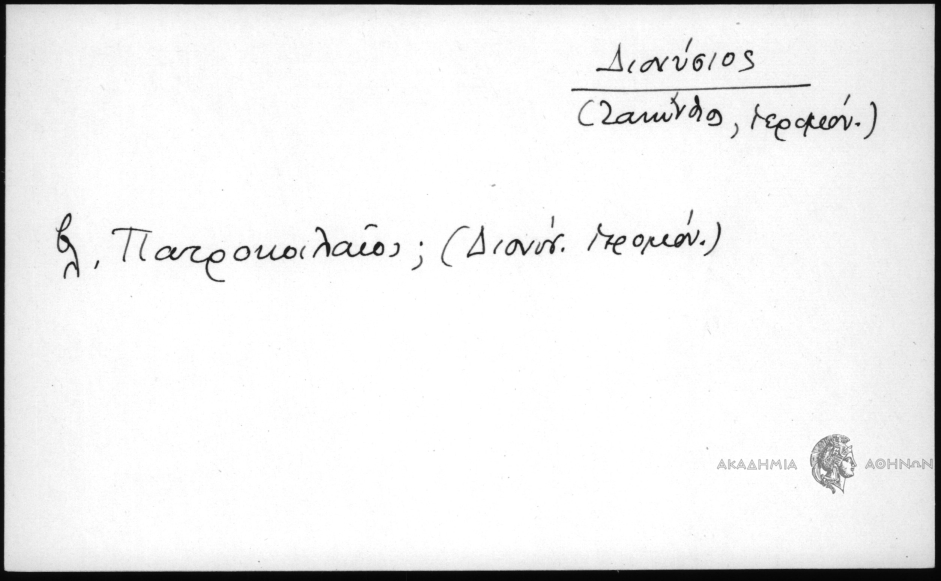 Διονύσιος
(Ζακύνθιος, ἱερομόν.)
βλ. Πατροκοιλαῖος; (Διονύσ. ἱερομόν.)
ΑΚΑΔΗΜΙΑ ΑΘΗΝΩΝ